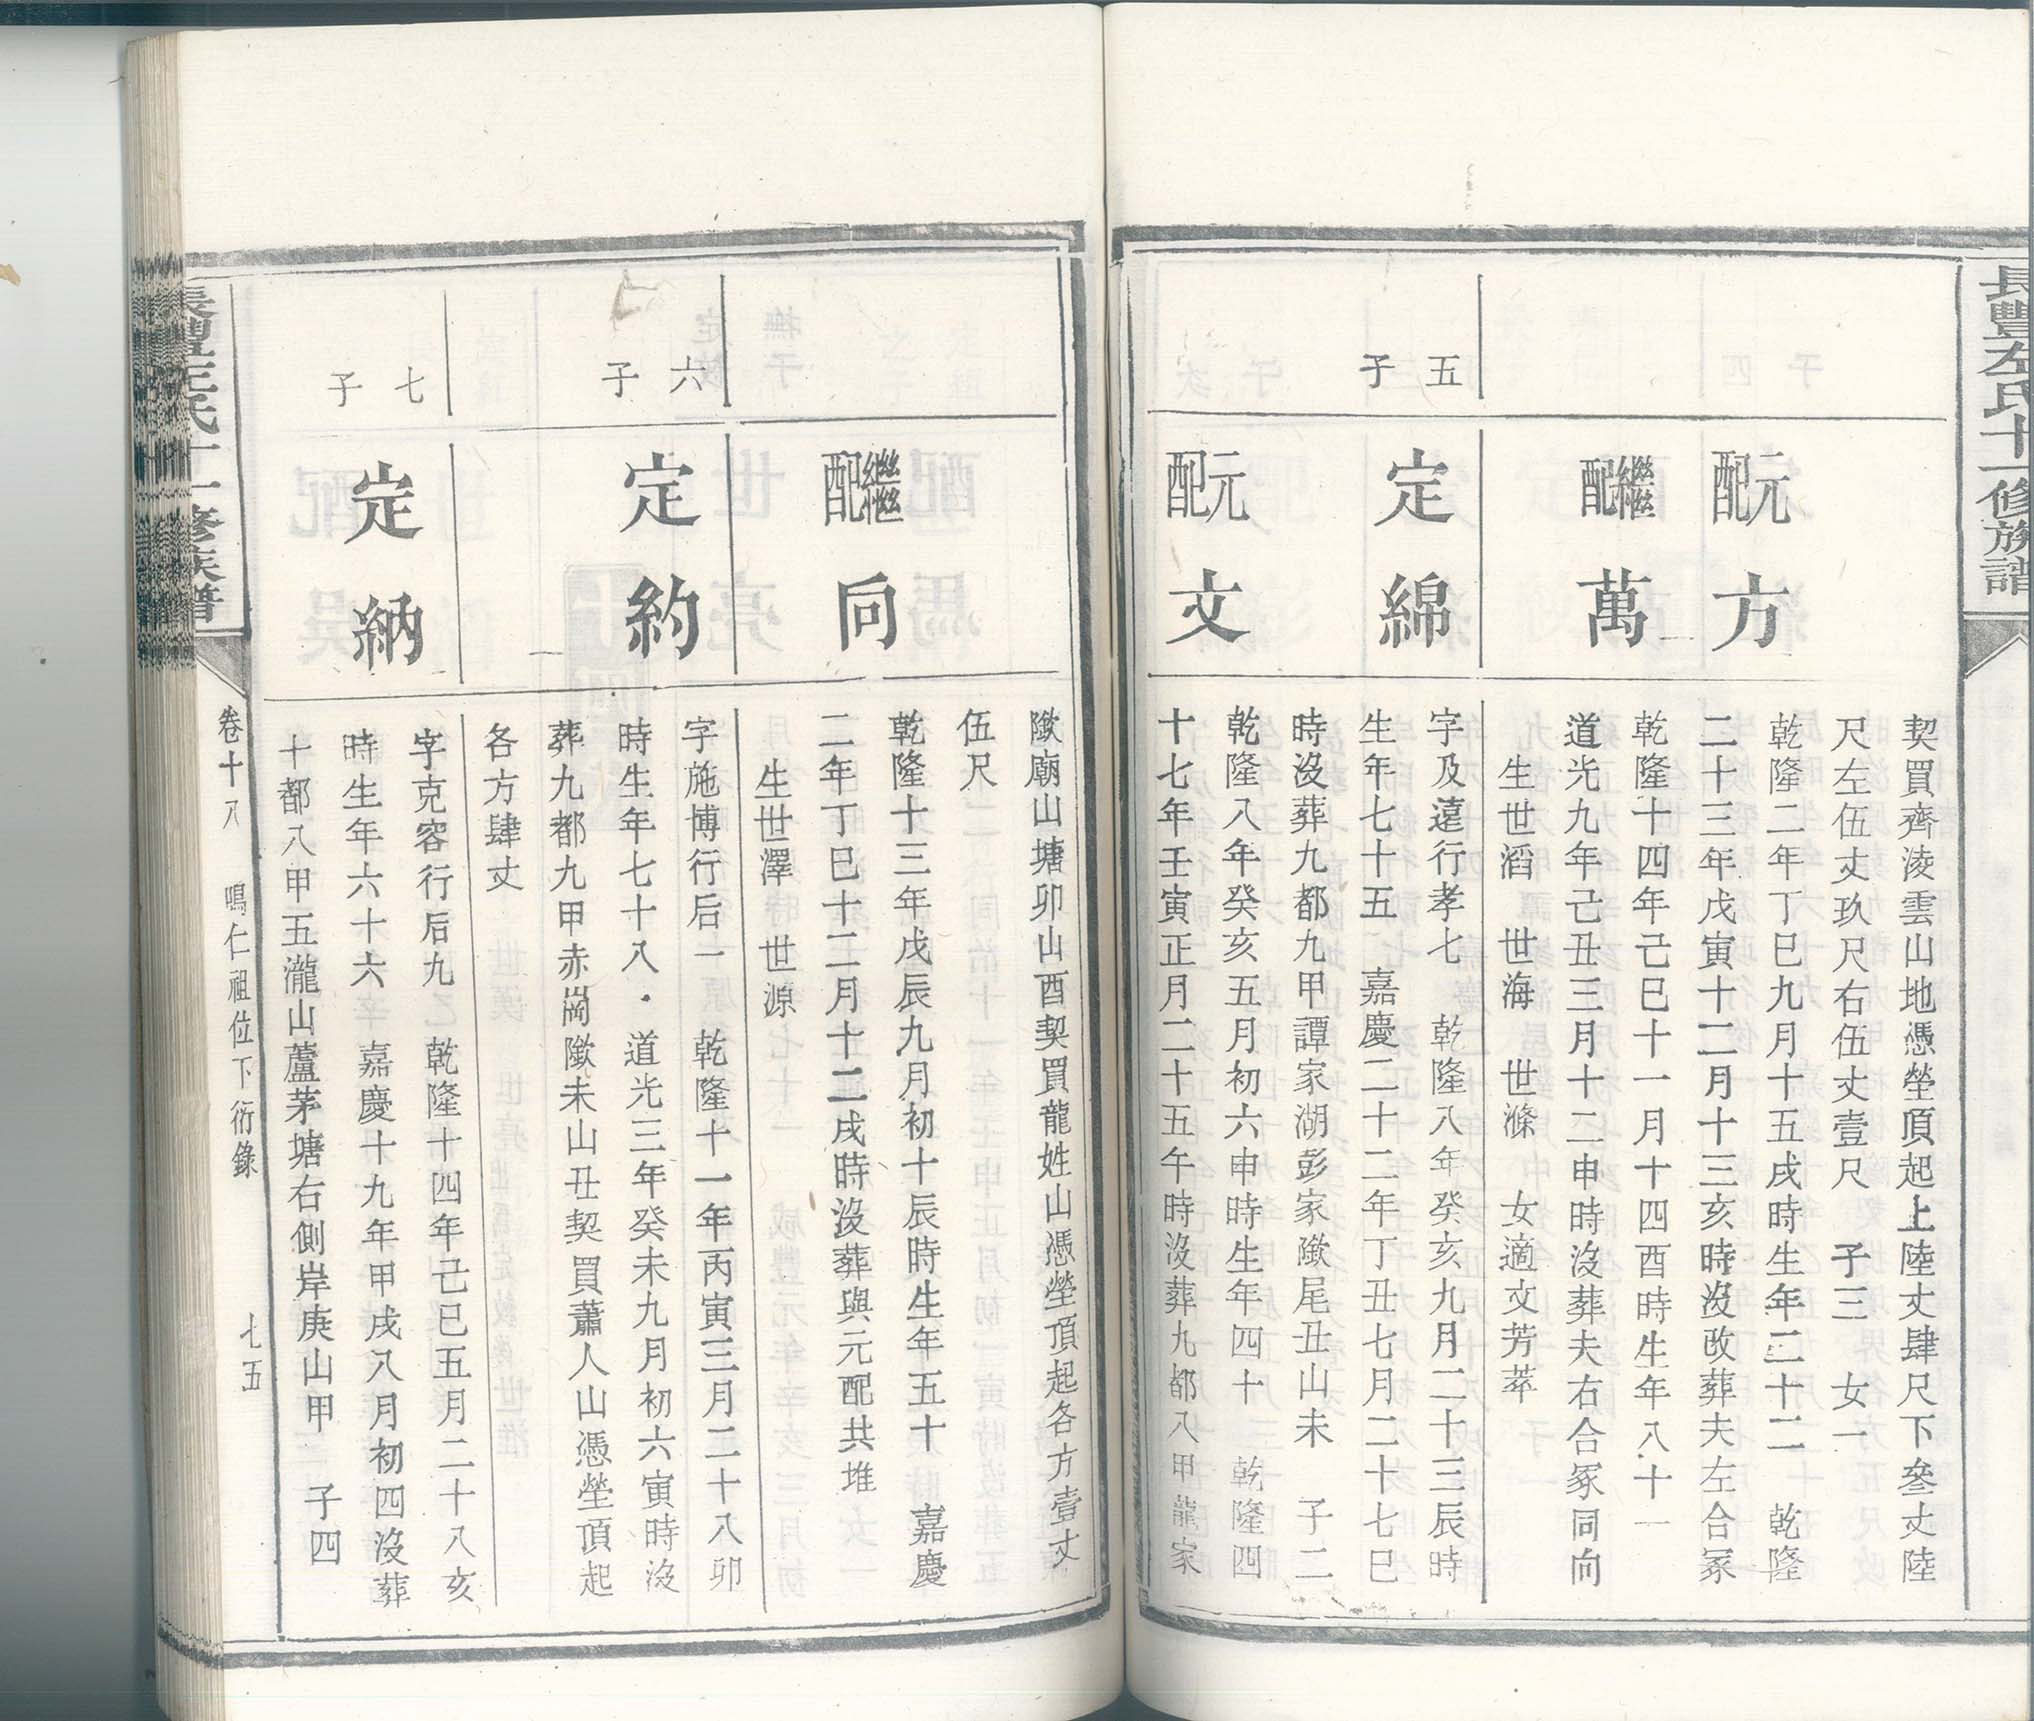 長豐左氏十一修族譜
元配方
契買齊淩雲山地憑塋頂起上陸丈肆尺下叄丈陸
尺左伍丈玖尺右伍丈壹尺 子三 女一
乾隆二年丁巳九月十五戌時生年二十二 乾隆
二十三年戊寅十二月十三亥時沒改葬夫左合冢
繼配萬
乾隆十四年己巳十一月十四酉時生年八十一
道光九年己丑三月十二申時沒葬夫右合冢同向
生世滔 世海 世滌 女適文芳萃
五子
定綿
字及遠行孝七 乾隆八年癸亥九月二十三辰時
生年七十五 嘉慶二十二年丁丑七月二十七巳
時沒葬九都九甲譚家湖彭家墩尾丑山未 子二
元配文
乾隆八年癸亥五月初六申時生年四十 乾隆四
十七年壬寅正月二十五午時沒葬九都八甲龍家
墩廟山塘卯山酉契買龍姓山憑塋頂起各方壹丈
伍尺
繼配向
乾隆十三年戊辰九月初十辰時生年五十 嘉慶
二年丁巳十二月十二戌時沒葬與元配共堆
生世澤 世源
六子
定約
字施博行后一 乾隆十一年丙寅三月二十八卯
時生年七十八 道光三年癸未九月初六寅時沒
葬九都九甲赤崗墩未山丑契買蕭人山憑塋頂起
各方肆丈
七子
定納
字克容行后九 乾隆十四年己巳五月二十八亥
時生年六十六 嘉慶十九年甲戌八月初四沒葬
十都八甲五瀧山蘆茅塘右側岸庚山甲 子四
長豐左氏十一修族譜
卷十八 鳴仁祖位下衍錄 七五